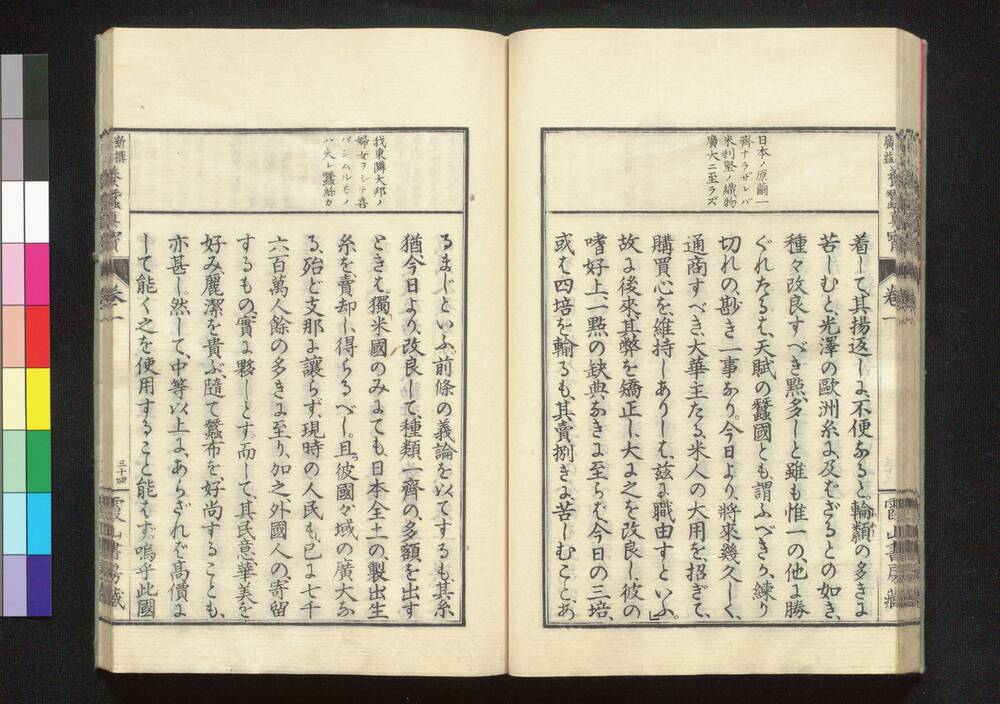 廣益 養蠶真寶 卷一
霞山書房藏
日本ノ原繭一
齊ナラザレバ
米利堅ノ織物
廣大ニ至ラズ
着して其揚返しよ不便なると輪類の多きよ
苦しむと光澤の歐洲糸よ及ばざるとの如き、
種々改良すべき點、多しと雖も惟一の、他よ勝
ぐれたるは、天賦の蠶國とも、謂ふべきか、練り
切れの、尠き一事なり。今日より、將來幾久しく、
通商すべき、大華主たる、米人の大用を招ぎて、
購買心を、維持しありしは、玆よ職由すといふ。」
故よ後來、其弊を矯正し、大よ之を改良し、彼の
嗜好上、一點の缺典なきよ至らば、今日の三培、
或は四培を輸るも、其賣捌きよ苦しむことあ
我東隣大邦ノ
婦女ヲシテ喜
バシムルモノ
ハ夫レ蠶絲カ
るまじといふ。前條の義論を以てするも、其糸
猶、今日より、改良して、種類一齊の、多額を出す
ときは、獨米國のみよても、日本全土の、製出生
糸を、賣却し、得らるべし。且、彼國々域の廣大な
る、殆ど支那よ讓らず、現時の人民も、已よ七千
六百萬人餘の多きよ至り、加之、外國人の、寄留
するもの、實よ夥しとす。而して、其民意、華美を
好み、麗潔を貴ぶ、隨て蠶布を、好尚することも、
亦甚し。然して、中等以上よ、あらざれば、高價よ
して能く之を使用すること能はず。嗚乎此國
新撰 養蠶真寶 卷一
三十四
霞山書房藏